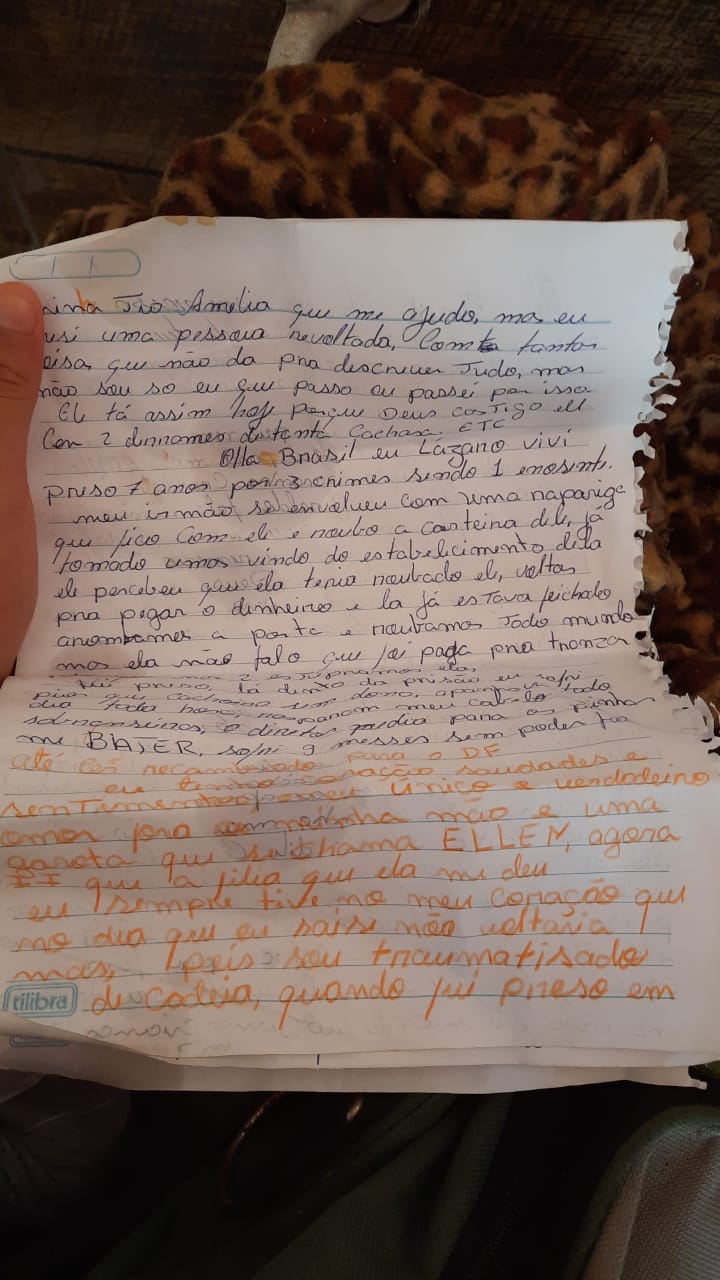 Tio Amelia que me ajudo, mas eu
uma pessoa revoltada, com tantas
que não da pra descrever Tudo, mas
não sou so eu que passo ou passei por isso
El tá assim hoje porque Deus castigo ell
Con 2 Cachasa. ETC
Olla Brasil eu Lázaro vivi
preso 7 anos por 3 crimes sendo 1 enosente.
meu irmão se envolveu com uma rapariga
que fico com ele e roubo a carteira dele, já
tomado umas vindo do estabelicimento dela
ele percebeu que ela teria roubado ele, voltas
pra pegar o dinheiro e la já estava feichado
arrombamos a porta e roubamos Todo mundo
mas ela não falo que foi paga pra tranzar
2 estupramos ela,
fui preso, lá dentro da prisão eu sofri
pior que cachorro sem dono, apanhava todo
dia toda hora, rasparam meu cabelo
sobranselhas, o diretor pedia para os
me BATER, sofri 9 messes sem poder
até ser recambiado para o DF
eu tenho coração saudades e
sentimentos único e verdadeiro
amor pra mão e uma
garota que se chama ELLEN, agora
que a filia que ela me deu
eu sempre tive no meu coração que
no dia que eu saise não voltaria
mas, pois sou traumatisado
tilibra de cadeia, quando fui preso em